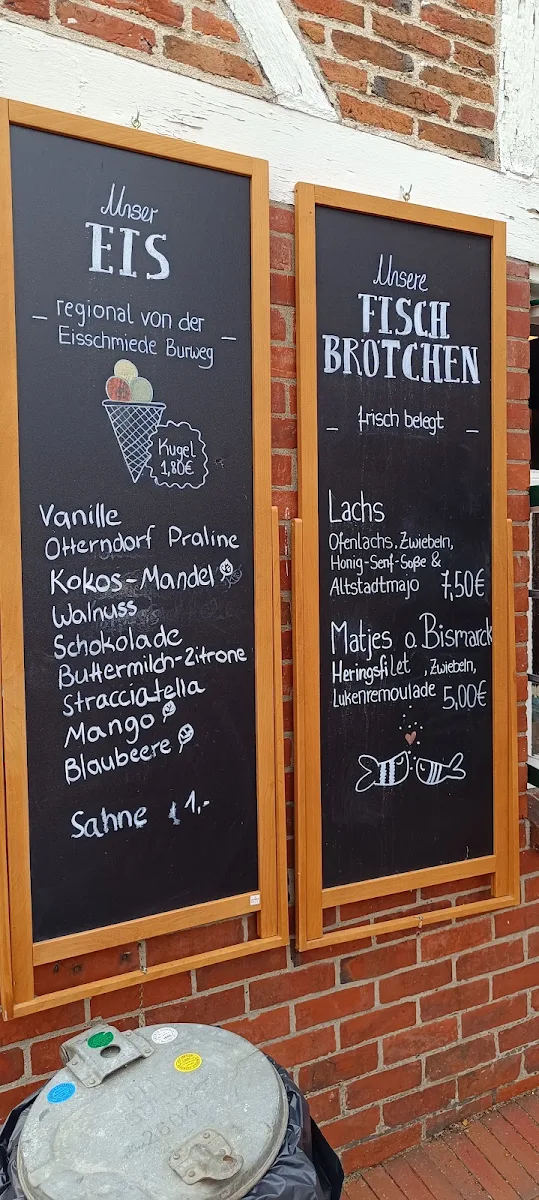 Unser
EIS
– regional von der –
Eisschmiede Burweg
Kugel
1,80€
Vanille
Otterndorf Praline
Kokos-Mandel
Walnuss
Schokolade
Buttermilch-Zitrone
Stracciatella
Mango
Blaubeere
Sahne 1,-
Unsere
FISCH
BRÖTCHEN
– frisch belegt –
Lachs
Ofenlachs, Zwiebeln,
Honig-Senf-Soße &
Altstadtmajo 7,50€
Matjes o. Bismarck
Heringsfilet , Zwiebeln,
Lukenremoulade 5,00€